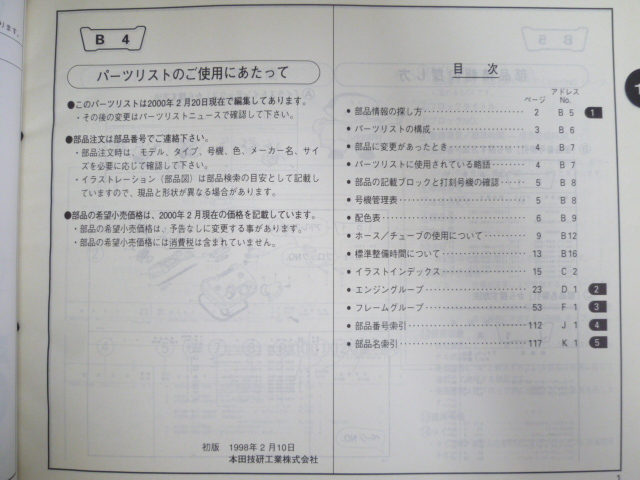 B 4
パーツリストのご使用にあたって
●このパーツリストは2000年2月20日現在で編集してあります。
・その後の変更はパーツリストニュースで確認して下さい。
●部品注文は部品番号でご連絡下さい。
・部品注文時は、モデル、タイプ、号機、色、メーカー名、サイ
ズを必要に応じて確認して下さい。
・イラストレーション（部品図）は部品検索の目安として記載し
ていますので、現品と形状が異なる場合があります。
●部品の希望小売価格は、2000年2月現在の価格を記載しています。
・部品の希望小売価格は、予告なしに変更する事があります。
・部品の希望小売価格には消費税は含まれていません。
初版 1998年2月10日
本田技研工業株式会社
目 次
ページ アドレスNo.
● 部品情報の探し方 2 B 5 1
● パーツリストの構成 3 B 6
● 部品に変更があったとき 4 B 7
● パーツリストに使用されている略語 4 B 7
● 部品の記載ブロックと打刻号機の確認 5 B 8
● 号機管理表 5 B 8
● 配色表 6 B 9
● ホース／チューブの使用について 9 B12
● 標準整備時間について 13 B16
● イラストインデックス 15 C 2
● エンジングループ 23 D 1 2
● フレームグループ 53 F 1 3
● 部品番号索引 112 J 1 4
● 部品名索引 117 K 1 5
1